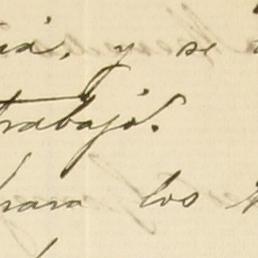 y se
trabajó.
para los